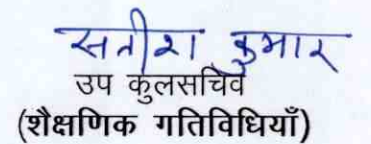 सतीश कुमार
उप कुलसचिव
(शैक्षणिक गतिविधियाँ)